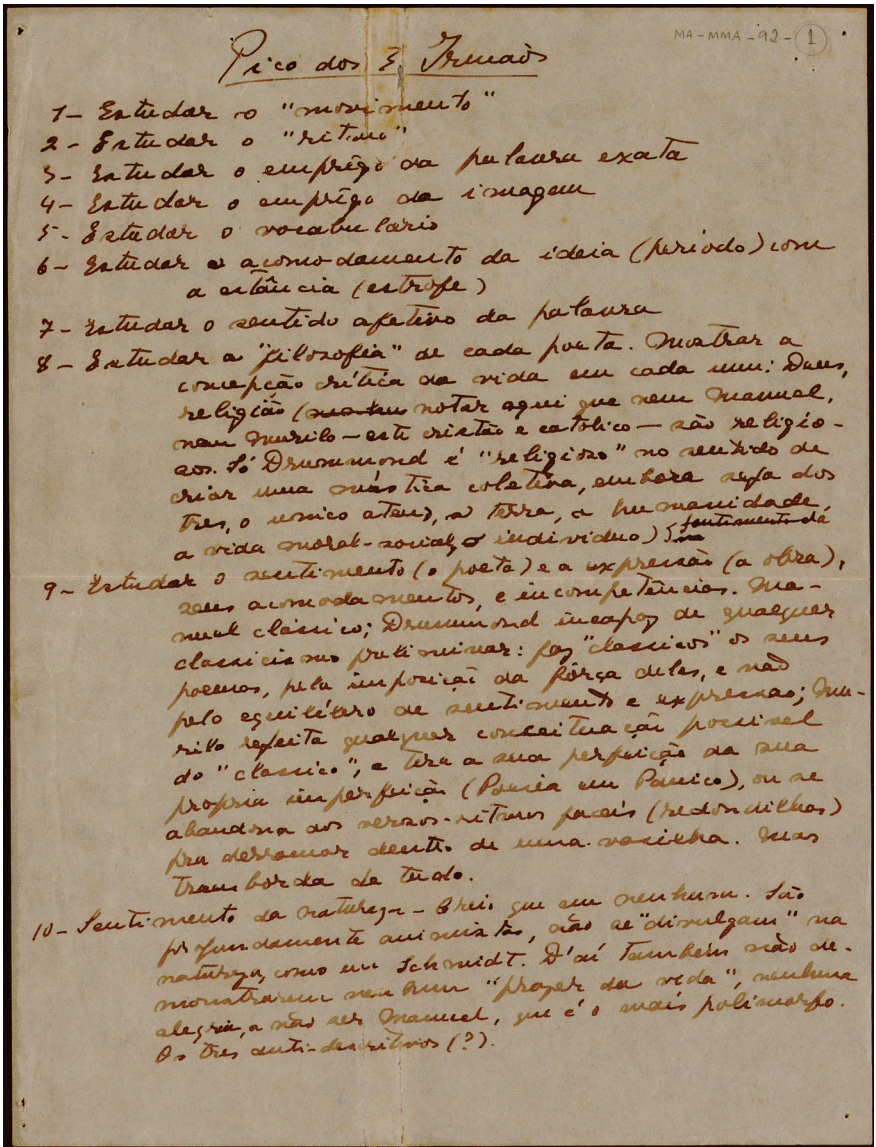 MA-MMA-92- 1
Pico dos 3 Irmãos
1- Estudar o "movimento"
2- Estudar o "ritmo"
3- Estudar o emprêgo da palavra exata
4- Estudar o emprêgo da imagem
5- Estudar o vocabulário
6- Estudar o acomodamento da ideia (período) com
a estância (estrofe)
7- Estudar o sentido afetivo da palavra
8- Estudar a "filosofia" de cada poeta. Mostrar a
concepção crítica da vida em cada um: Deus,
religião (notar aqui que nem Manuel,
nem Murilo - este cristão e católico - são religio-
sos. Só Drummond é "religioso" no sentido de
criar uma mística coletiva, embora seja dos
tres, o unico ateu), a terra, a humanidade,
a vida moral-social, o individuo) sentimento da
9- Estudar o sentimento (o poeta) e a expressão (a obra),
seus acomodamentos, e incompetências. Ma-
nuel clássico; Drummond incapaz de qualquer
classicismo preliminar: faz "classicos" os seus
poemas, pela imposição da fôrça deles, e não
pelo equilíbrio de sentimento e expressão; Mu-
rilo rejeita qualquer conceituação possivel
do "classico", e tira a sua perfeição da sua
propria imperfeição (Poesia em Pânico), ou se
abandona aos versos-ritmos faceis (redondilhas)
pra derramar dentro de uma vasilha. Mas
transborda de tudo.
10- Sentimento da natureza - Creio que em nenhum. São
profundamente animistas, não se "divulgam" na
natureza, como em Schmidt. D'aí também não de-
monstrarem nenhum "prazer da vida", nenhuma
alegria, a não ser Manuel, que é o mais polimorfo.
Os tres anti-descritivos (?).